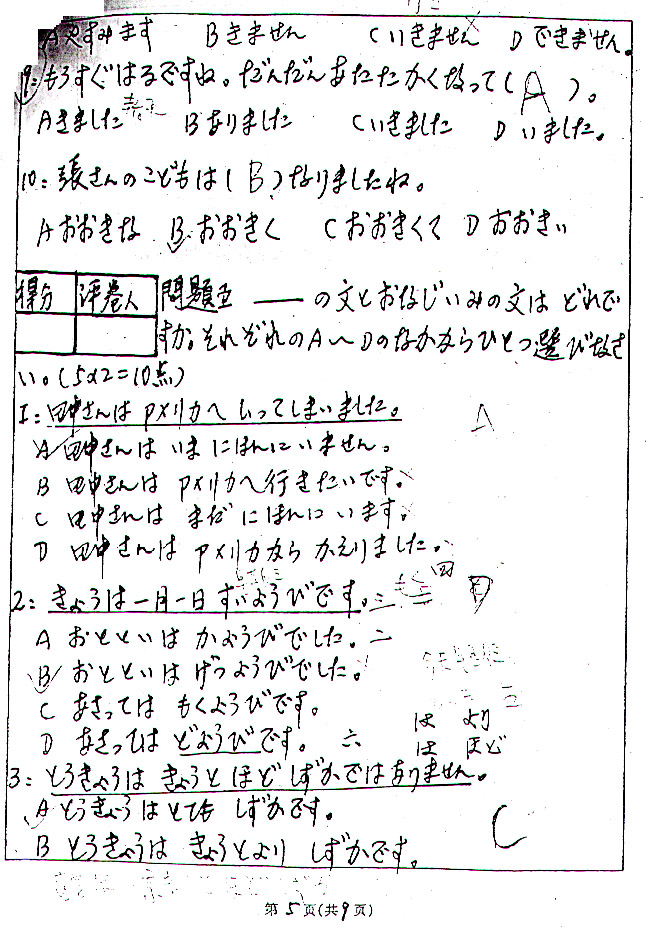 Aやすみます Bきません Cいきません Dできません。
9:もうすぐはるですね。だんだんあたたかくなって(A)。
Aきました Bなりました Cいきました Dいました。
10:張さんのこどもは(B)なりましたね。
Aおおきな B.おおきく Cおおきくて Dおおきい
得分 评卷人 問題五 ——の文とおなじいみの文は どれで
すか。それぞれのA～Dのなかからひとつ選びなさ
い。(5x2=10点)
1:田中さんは アメリカへ いってしまいました。 A
A 田中さんは いま にほんにいません。
B 田中さんは アメリカへ行きたいです。
C 田中さんは まだ にほんに います。
D 田中さんは アメリカから かえりました。
2:きょうは一月一日 すいようびです。三 四
A おとといは かようびでした。二
B おとといは げつようびでした。
C あさっては もくようびです。
D あさっては どようびです。 六
は より
は ほど
3:とうきょうは きょうと ほど しずかではありません。
A とうきょうは とても しずかです。
C
B とうきょうは きょうとより しずかです。
第5页(共9页)